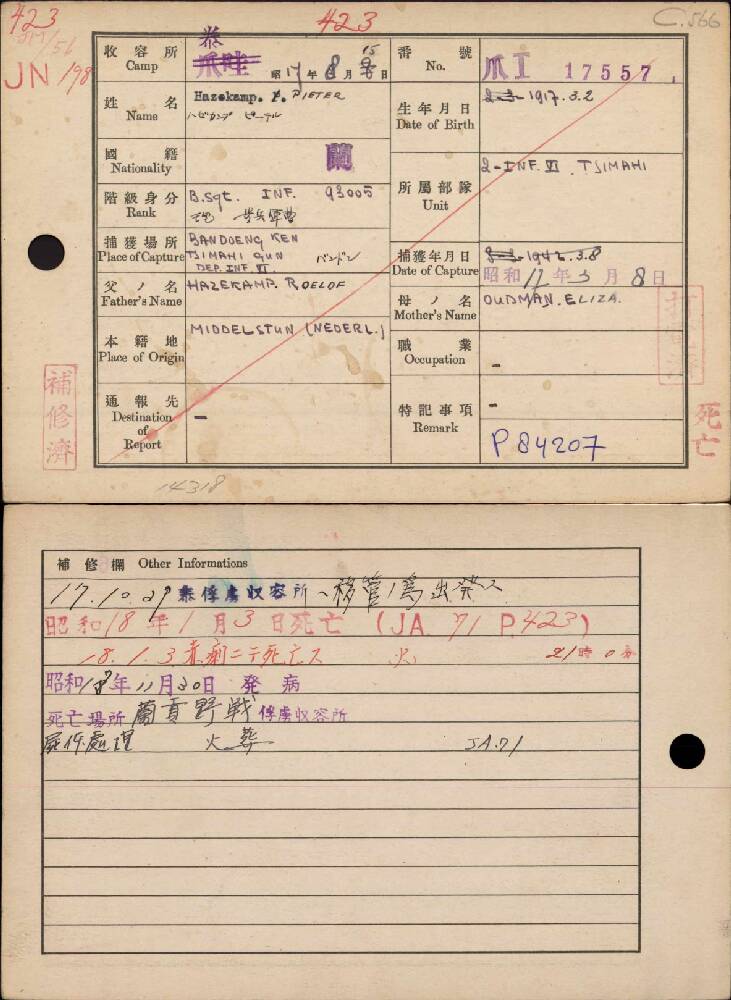 423
423
C.566
JN 198
收容所 Camp
泰
爪哇
昭 17 年 8 月 15 日
番號 No.
爪I 17557
姓名 Name
Hazekamp. P. PIETER
ハゼカンプ ピーテル
生年月日 Date of Birth
2-3-1917.3.2
國籍 Nationality
蘭
階級身分 Rank
B.Sgt. INF. 93005
所屬部隊 Unit
2-INF. VI TJIMAHI
捕獲場所 Place of Capture
BANDOENG KEN
TJIMAHI GUN バンドン
DEP. INF. VI.
捕獲年月日 Date of Capture
8-3-1942.3.8
昭和 17 年 3 月 8 日
父ノ名 Father's Name
HAZEKAMP. ROELOF
母ノ名 Mother's Name
OUDMAN. ELIZA.
本籍地 Place of Origin
MIDDELSTUN (NEDERL.)
職業 Occupation
-
通報先 Destination of Report
-
特記事項 Remark
-
P 84207
補修濟
死亡
14318
補修欄 Other Informations
17.10.29 泰俘虜収容所ヘ移管ノ爲出発ス
昭和18年1月3日死亡 (JA 71 P.423)
18.1.3 赤痢ニテ死亡ス 火 21時0分
昭和17年11月30日 発病
死亡場所 蘭貢野戦俘虜収容所
屍体處理 火葬 JA.71